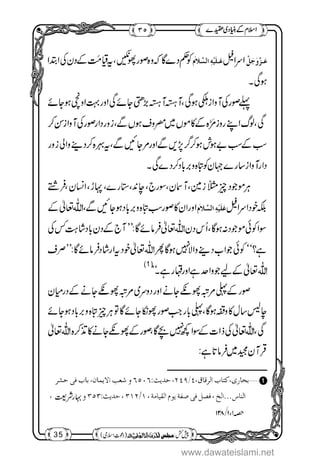 اسلام کے بنیادی عقیدے
۳۵
عَزَّوَجَلَّ اسرافیل عَلَیْہِ السَّلَام کو حکم دے گا کہ وہ صور پھونکیں، یہ قیامت کے دن کی ابتدا
ہوگی۔
پہلے صور کی آواز ہلکی ہوگی، آہستہ آہستہ بڑھتی جائے گی اور بہت اونچی ہوجائے
گی، لوگ اپنے روزمرّہ کے کاموں میں مصروف ہوں گے، زوردار صور کی آواز سن کر
سب کے سب بے ہوش ہوکر گر پڑیں گے اور مرجائیں گے، یہ بہرہ کردینے والی زور
دار آواز سارے جہاں کو تباہ وبرباد کردے گی۔
ہر موجود چیز مثلاً زمین، آسمان، سورج، چاند، ستارے، پہاڑ، انسان، فرشتے
بلکہ خود اسرافیل عَلَیْہِ السَّلَام اور ان کا صور سب تباہ وبرباد ہوجائیں گے، اللہ تعالٰی کے
سوا کوئی موجود نہ ہوگا، اُس دن اللہ تعالٰی فرمائے گا: ’’آج کے دن بادشاہت کس کی
ہے؟‘‘ کوئی جواب دینے والا نہیں ہوگا پھر اللہ تعالٰی خود ہی ارشاد فرمائے گا: ’’صرف
اللہ تعالٰی کے لیے جو واحد ہے اور قہار ہے۔‘‘ (۱)
صور کے پہلی مرتبہ پھونکے جانے اور دوسری مرتبہ پھونکے جانے کے درمیان
چالیس سال کا وقفہ ہوگا، پہلی بار جب صور پھونکا جائے گا تو ہر چیز تباہ وبرباد ہوجائے
گی، اللہ تعالٰی کی ذات کے سوا کچھ نہیں بچے گا، صور پھونکے جانے کا تذکرہ اللہ تعالٰی
قرآن مجید میں فرماتا ہے:
1 ...... بخاری، کتاب الرقاق، ۴/۲۴۹، حدیث: ۶۵۰۶ و شعب الایمان، باب فی حشر
الناس...الخ، فصل فی صفة یوم القیامة، ۱/۳۱۲، حدیث: ۳۵۳ و بہار شریعت،
حصہ۱، ۱/۱۲۸
35
پیش کش: (دعوتِ اسلامی)
www.dawateislami.net